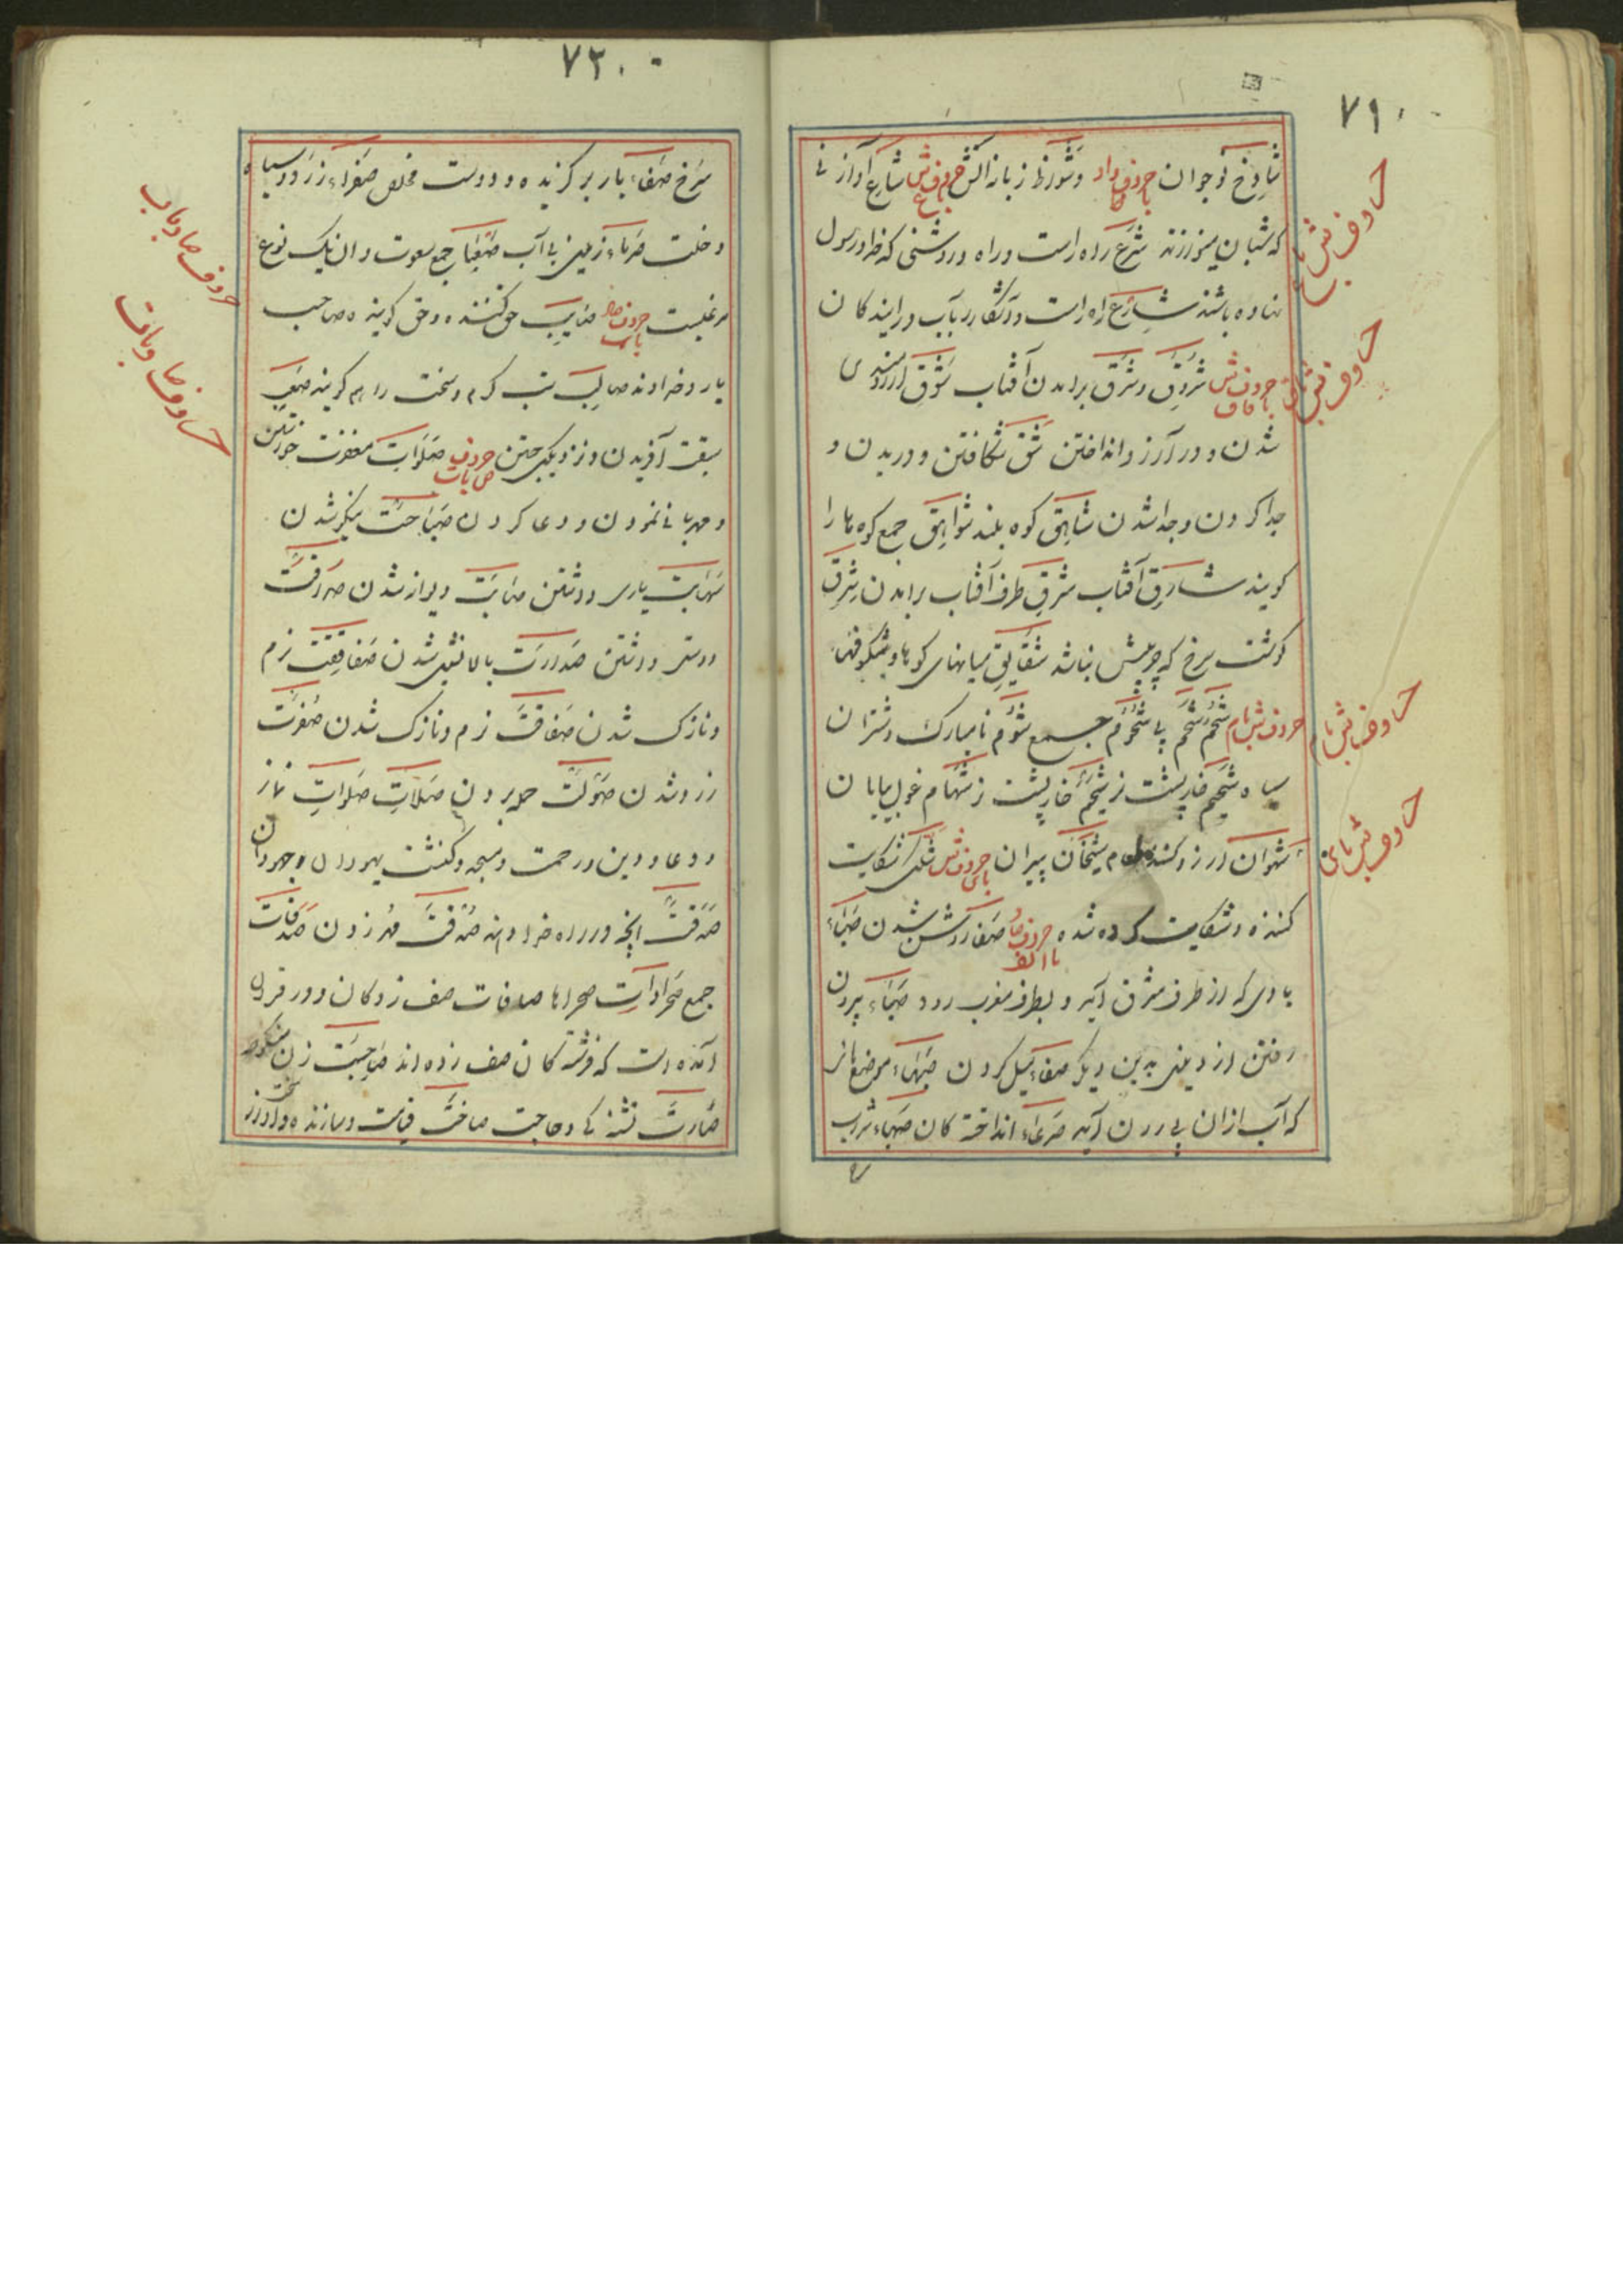 ۷۱۰
شاوخ نوجوان حروف با وشواظ زبانه آتش حروف ش با ع شایع آواز نی
که شبان مینوازند شرع راه راست وراه وروشنی که خدا ورسول
نهاده باشند شارع راه راست وآشکار ریاب ودرایندکان
حروف ش با قاف شروق وشرق برامدن آفتاب شوق آرزومندی
شدن ودر آرزو انداختن شق شکافتن ودریدن و
جدا کردن وجدا شدن شاهق کوه بلند شواهق جمع کوه ها را
کویند شارق آفتاب شرق طرف آفتاب برامدن شرق
کوشت سرخ که چربیش نباشد شقایق میانهای کوه ها وشکوفها
حروف ش با م شحم شحم پیه شحوم جمع شوم نامبارک وشتران
سیاه شیهم خارپشت نر شیهم خارپشت نر شهام غول بیابان
شهوان آرزو کننده طعام شیخان پیران حروف ش با ی شکی شکایت
کننده وشکایت کرده شده حروف ص با الف صفا روشن شدن صباء
بادی که از طرف مشرق آید وبطرف مغرب رود صباء بیرون
رفتن از دینی بدین دیکر صفاء میل کردن صهاء موضع هائی
که آب ازان بیرون آید صرعاء انداخته کان صهباء شراب
حروف ش با ع
حروف ش با ق
حروف ش با م
حروف ش با ی
۷۲۰
سرخ صفاء یار برکزیده ودوست مخلص صفراء زرد وسیاه
وخلت صرماء زمین بی آب جمع صعوت وان یک نوع
مرغیست حروف صاد با ب صایب حق کننده وحق کوینده صاحب
یار وخداوند صالب تب کرم وسخت را هم کویند صعب
سخت آفریدن ونزدیکی جستن حروف ص با ت صلوات مغفرت خواستن
ومهربانی نمودن ودعا کردن صباحت نیکو شدن
صحابت یاری وداشتن صبابت دیوانه شدن صداقت
دوستی وداشتن صدارت بالا نشین شدن صفاقت نرم
ونازک شدن صفاقت نرم ونازک شدن صفرت
زرد شدن صولت حمله بردن صلات صلوات نماز
ودعا ودین ورحمت ومسجد وکنشت یهودان وجهودان
صدقت آنچه در راه خدا دهند صدقت مهر زدن صدقات
جمع صحراوات صحراها صافات صف زدکان ودر قران
آمده است که فرشته کان صف زده اند صاحبت زن منکوحه
صارت تشنه کی وحاجت صاخت قیامت وسازنده وآواز سخت
حروف صاد با ب
حروف صاد با ت